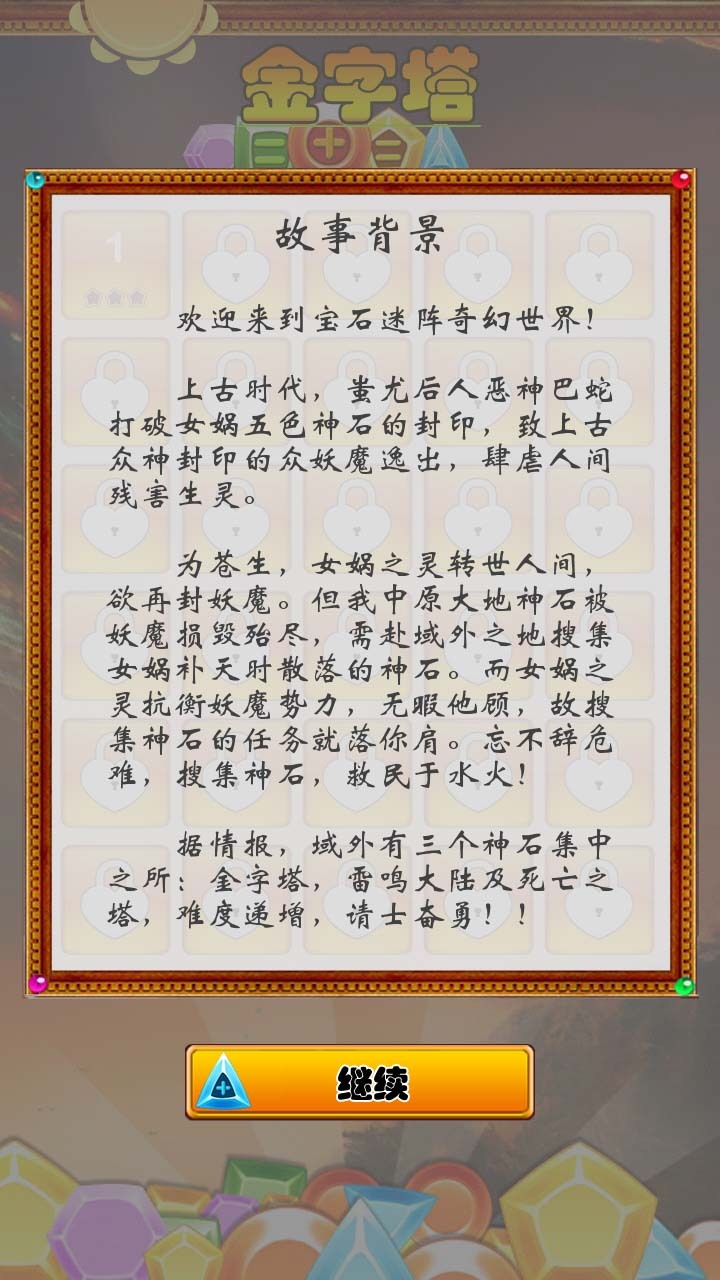 金字塔
1
故事背景
欢迎来到宝石迷阵奇幻世界！
上古时代，蚩尤后人恶神巴蛇
打破女娲五色神石的封印，致上古
众神封印的众妖魔逸出，肆虐人间
残害生灵。
为苍生，女娲之灵转世人间，
欲再封妖魔。但我中原大地神石被
妖魔损毁殆尽，需赴域外之地搜集
女娲补天时散落的神石。而女娲之
灵抗衡妖魔势力，无暇他顾，故搜
集神石的任务就落你肩。忘不辞危
难，搜集神石，救民于水火！
据情报，域外有三个神石集中
之所：金字塔，雷鸣大陆及死亡之
塔，难度递增，请士奋勇！！
继续